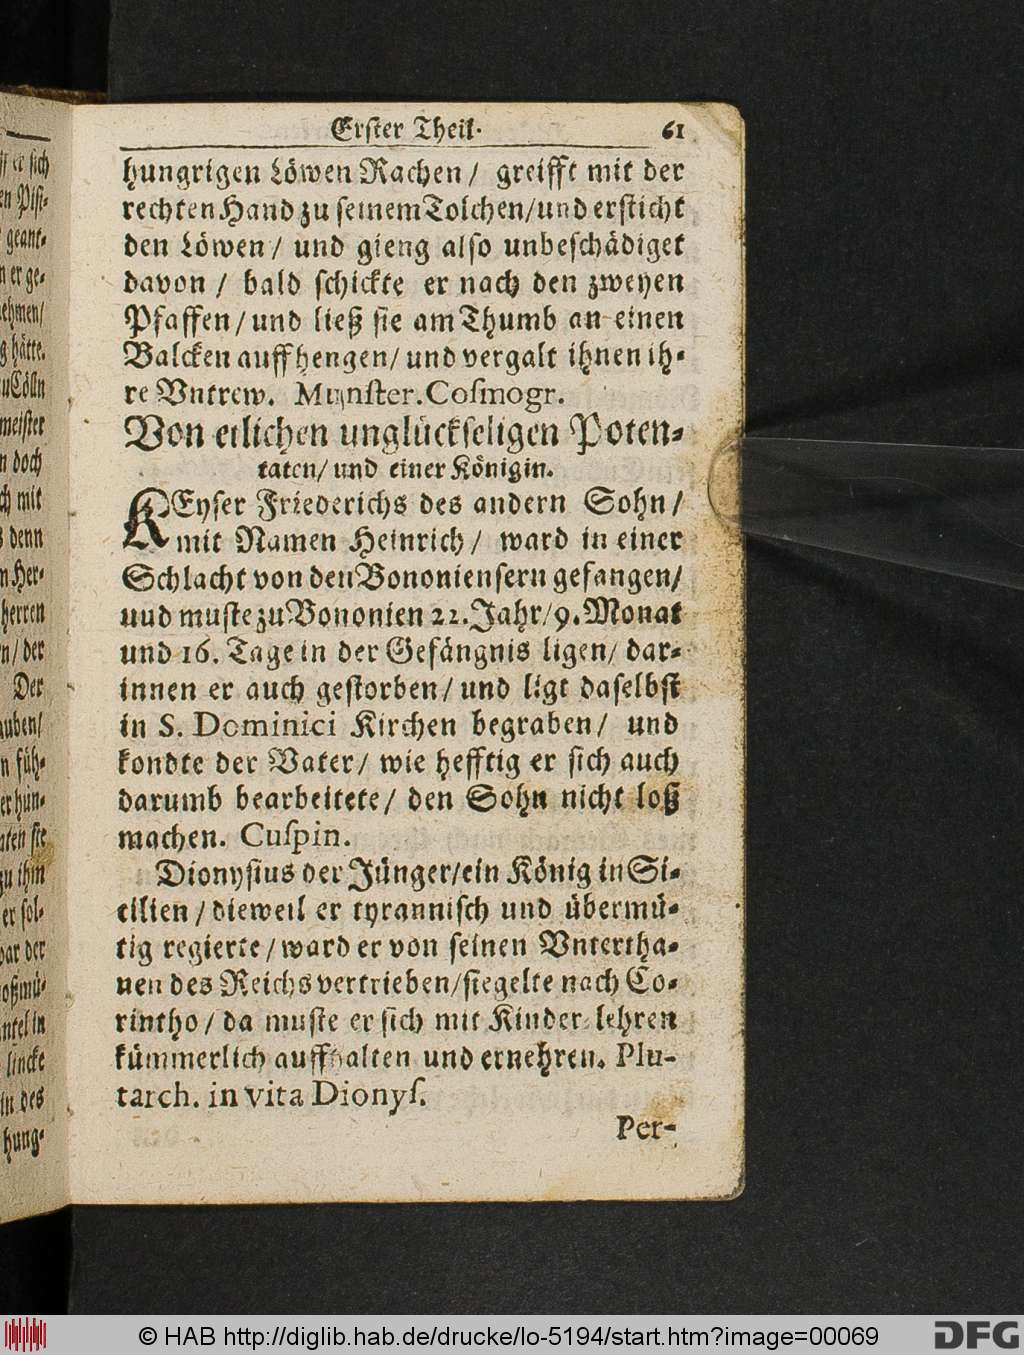 Erster Theil. 61
hungrigen Löwen Rachen/ greifft mit der
rechten Hand zu seinem Tolchen/ und ersticht
den Löwen/ und gieng also unbeschädiget
davon/ bald schickte er nach den zweyen
Pfaffen/ und ließ sie am Thumb an einen
Balcken auffhengen/ und vergalt ihnen ih-
re Vntrew. Munster. Cosmogr.
Von etlichen unglückseligen Poten-
taten/ und einer Königin.
KEyser Friederichs des andern Sohn/
mit Namen Heinrich/ ward in einer
Schlacht von den Bononiensern gefangen/
uud muste zu Bononien 22. Jahr/ 9. Monat
und 16. Tage in der Gefängnis ligen/ dar-
innen er auch gestorben/ und ligt daselbst
in S. Dominici Kirchen begraben/ und
kondte der Vater/ wie hefftig er sich auch
darumb bearbeitete/ den Sohn nicht loß
machen. Cuspin.
Dionysius der Jünger/ ein König in Si-
cilien/ dieweil er tyrannisch und übermü-
tig regierte/ ward er von seinen Vntertha-
nen des Reichs vertrieben/ siegelte nach Co-
rintho/ da muste er sich mit Kinder lehren
kümmerlich auffhalten und ernehren. Plu-
tarch. in vita Dionys.
Per-
er sich
en Pist-
geant-
n er ge-
ehmen/
g hätte.
zu Cölln
meister
n doch
ch mit
s denn
n Her-
herren
n/ der
Der
auben/
n füh-
er hün-
aten sie
zu ihm
er sol-
bar der
oßmü-
ntel in
lincke
in des
hung-
© HAB http://diglib.hab.de/drucke/lo-5194/start.htm?image=00069
DFG